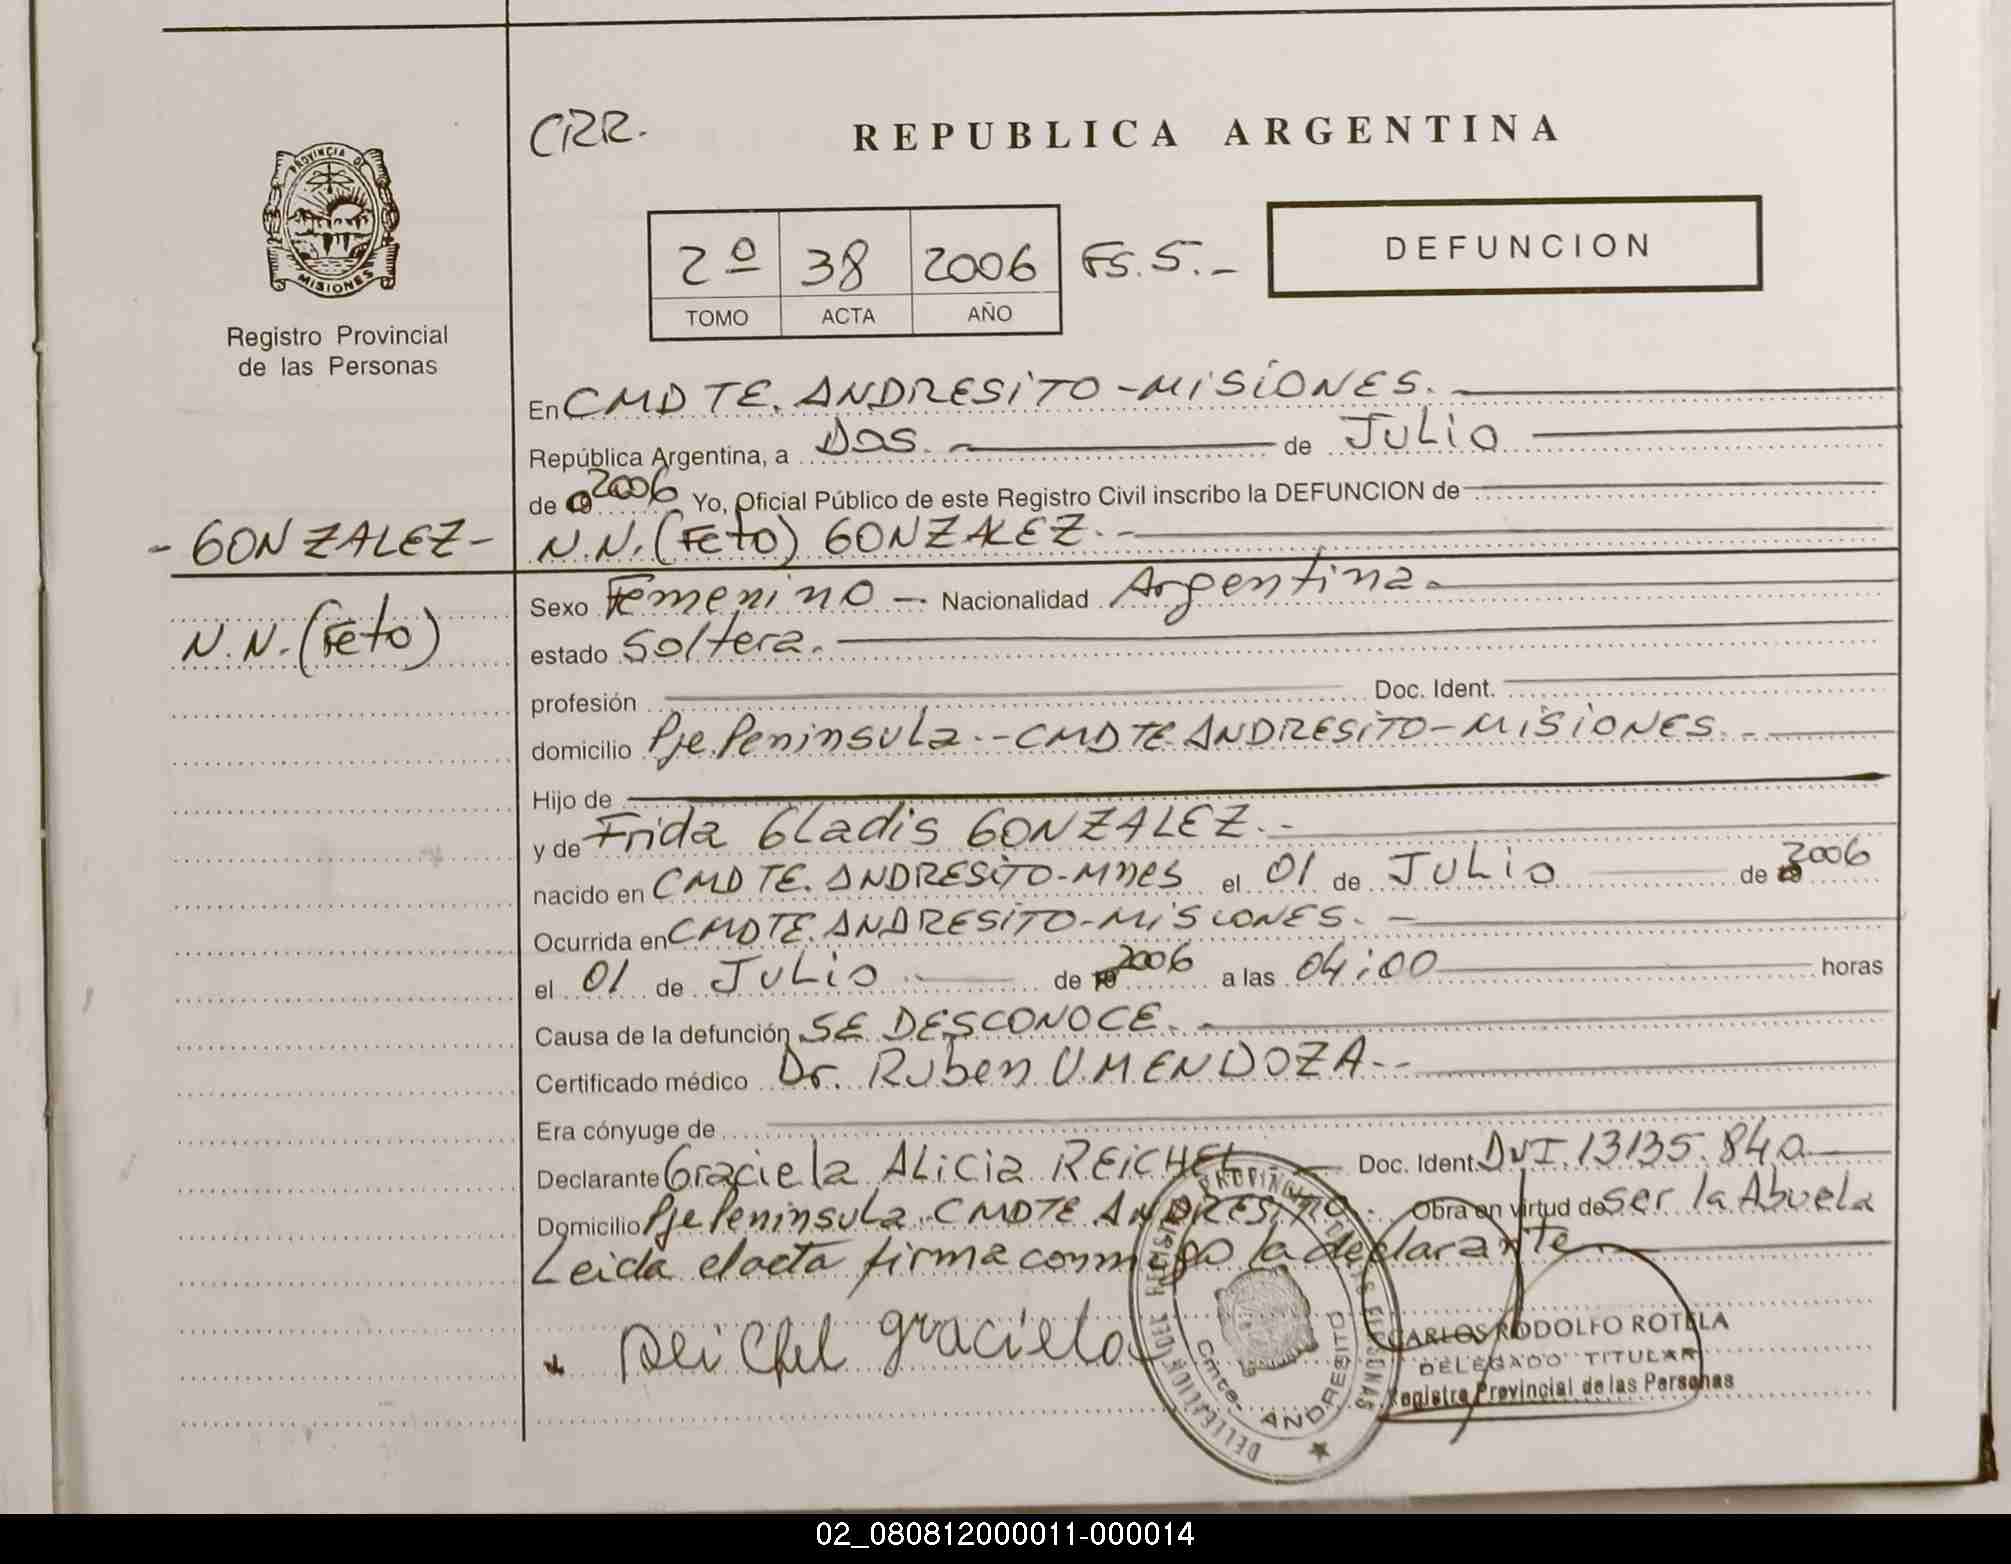 CRR.
REPUBLICA ARGENTINA
PROVINCIA DE
MISIONES
Registro Provincial
de las Personas
2º 38 2006 Fs. 5.-
TOMO ACTA AÑO
DEFUNCION
En CMDTE. ANDRESITO - MISIONES.
República Argentina, a Dos. de JULIO
de 2006 Yo, Oficial Público de este Registro Civil inscribo la DEFUNCION de
- GONZALEZ - N.N. (Feto) GONZALEZ. -
N.N. (Feto)
Sexo Femenino - Nacionalidad Argentina.
estado Soltera.
profesión Doc. Ident.
domicilio Pje. Peninsula.- CMDTE ANDRESITO - MISIONES. -
Hijo de
y de Frida Gladis GONZALEZ. -
nacido en CMDTE. ANDRESITO - Mnes el 01 de JULIO de 2006
Ocurrida en CMDTE. ANDRESITO - MISIONES. -
el 01 de JULIO de 2006 a las 04:00 horas
Causa de la defunción SE DESCONOCE. -
Certificado médico Dr. Ruben U. MENDOZA.-
Era cónyuge de
Declarante Graciela ALiciA REICHEL Doc. Ident. DNI. 13135.840
Domicilio Pje Peninsula. CMDTE ANDRESITO. Obra en virtud de ser la Abuela
Leida el acta firma conmigo la declarante
Reichel graciela
CARLOS RODOLFO ROTELA
DELEGADO TITULAR
Registro Provincial de las Personas
Cmte. ANDRESITO
02_080812000011-000014